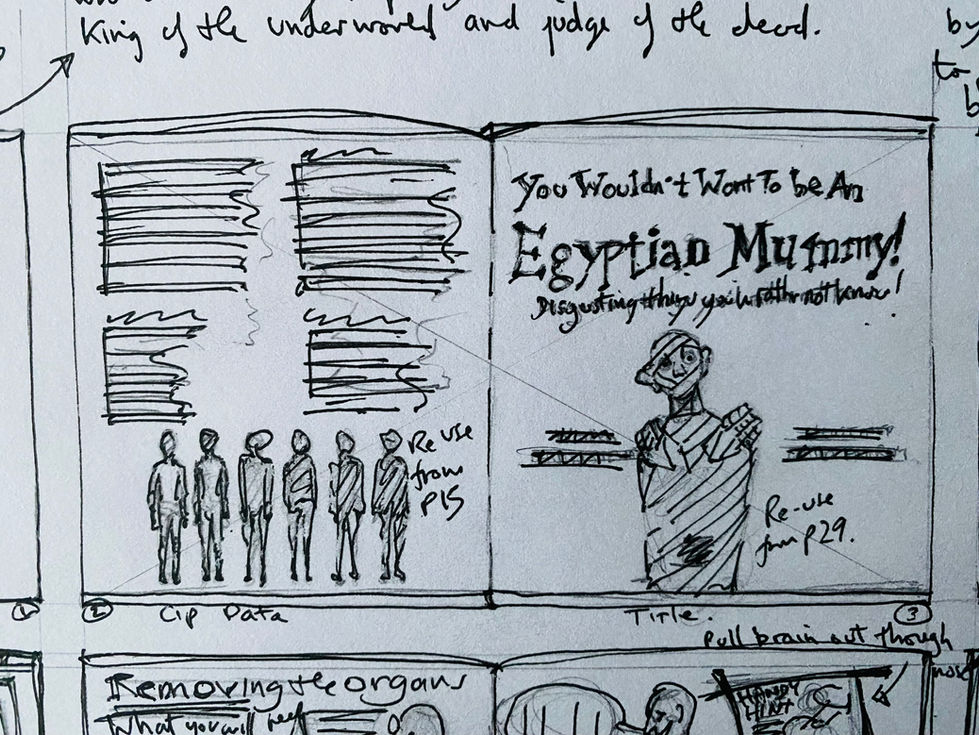 King of the underworld and judge of the dead.
by
to
b
You Wouldn't Want To be An
Egyptian Mummy!
Disgusting things you'd rather not know!
Re use
from
P15
Re-use
from P29.
1
2
Cip Data
Title.
3
Pull brain out though
nose
Removing the organs
What you will need
HANDY
HINT